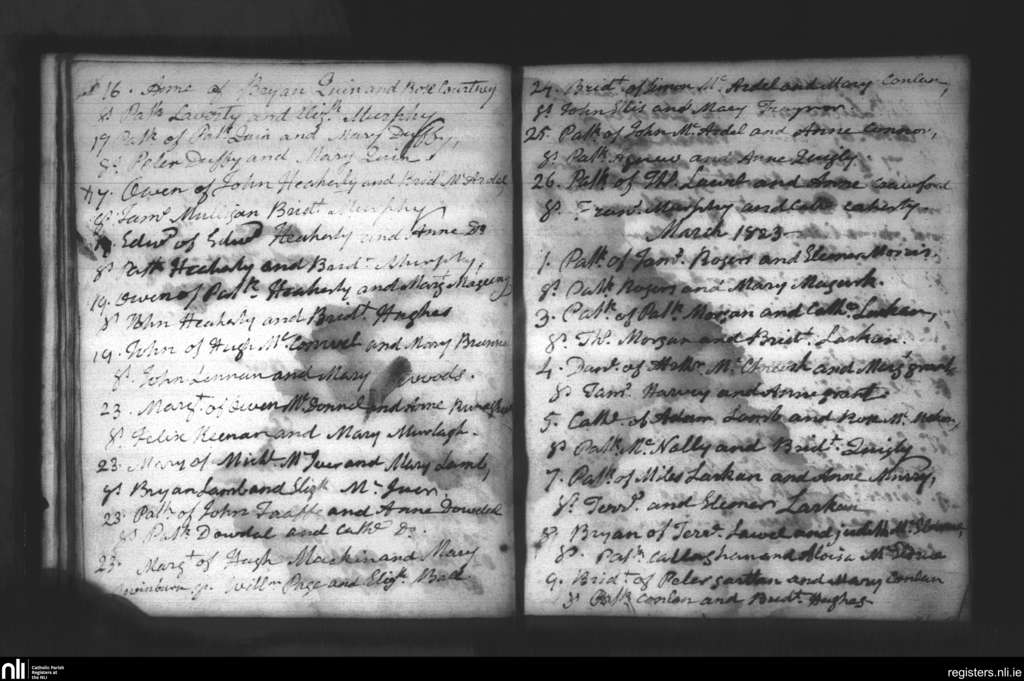 16. Anne of Bryan Quin and Rose Courtney
Sps Patk Laverty and Elizth Murphy
19 Patk of Patk Quin and Mary Duffy,
Sps Peter Duffy and Mary Quin.
17. Owen of John Heaherty and Bridt Mc Ardel
Sps Jams Mulligan Bridt Murphy
Edwd of Edwd Heaherty and Anne Do
Sps Patk Heaherty and Bridt Murphy,
19. Owen of Patk Heaherty and Margt
Sps John Heaherty and Bridt Hughes
19. John of Hugh Mc and Mary
Sps John Lennan and Mary Woods.
23. Margt of Owen Mc Donnel and Anne
Sps Felix Keenan and Mary Murtagh.
23. Mary of Michl Mc Iver and Mary Lamb,
Sps Bryan Lamb and Elizth Mc Iver.
23. Patk of John Taaffe and Anne Dowdal
Sps Patk Dowdal and Cathe Do.
23. Margt of Hugh Mackin and Mary
Swinburn Sps Willm Page and Elizth
24. Bridt of Simon Mc Ardel and Mary Conlan,
Sps John Ellis and Mary Traynor.
25. Patk of John Mc Ardel and Anne Connor,
Sps Patk Agnew and Anne Quigly.
26. Patk of Ths and Anne Crawford
Sps Frans Murphy and Cathe
March 1823
1. Patk of Jams Rogers and Eleoner Morris.
Sps Patk Rogers and Mary Magurk.
3. Patk of Patk Morgan and Cathe Larkan,
Sps Ths Morgan and Bridt Larkan.
4. of Mc and Margt grant
Sps Jams Harvey and Anne grant
5. Cathe of Adam Lamb and Rose Mc Mahon,
Sps Patk Mc Nally and Bridt Quigly
7. Patk of Miles Larkan and Anne Murry,
Sps and Eleoner Larkan
8. Bryan of and Judith Mc
Sps Patk Callaghan and
9. Bridt of Peter gartlan and Mary Conlan
Sps Patk Conlan and Bridt Hughes
nli
Catholic Parish
Registers at
the NLI
registers.nli.ie